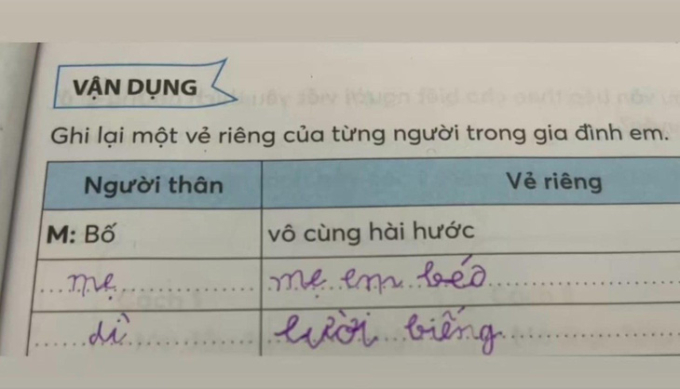 VẬN DỤNG
Ghi lại một vẻ riêng của từng người trong gia đình em.
Người thân Vẻ riêng
M: Bố vô cùng hài hước
mẹ mẹ em béo
dì lười biếng